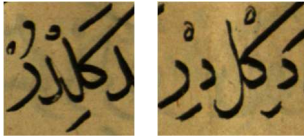 دكلدر دكل در